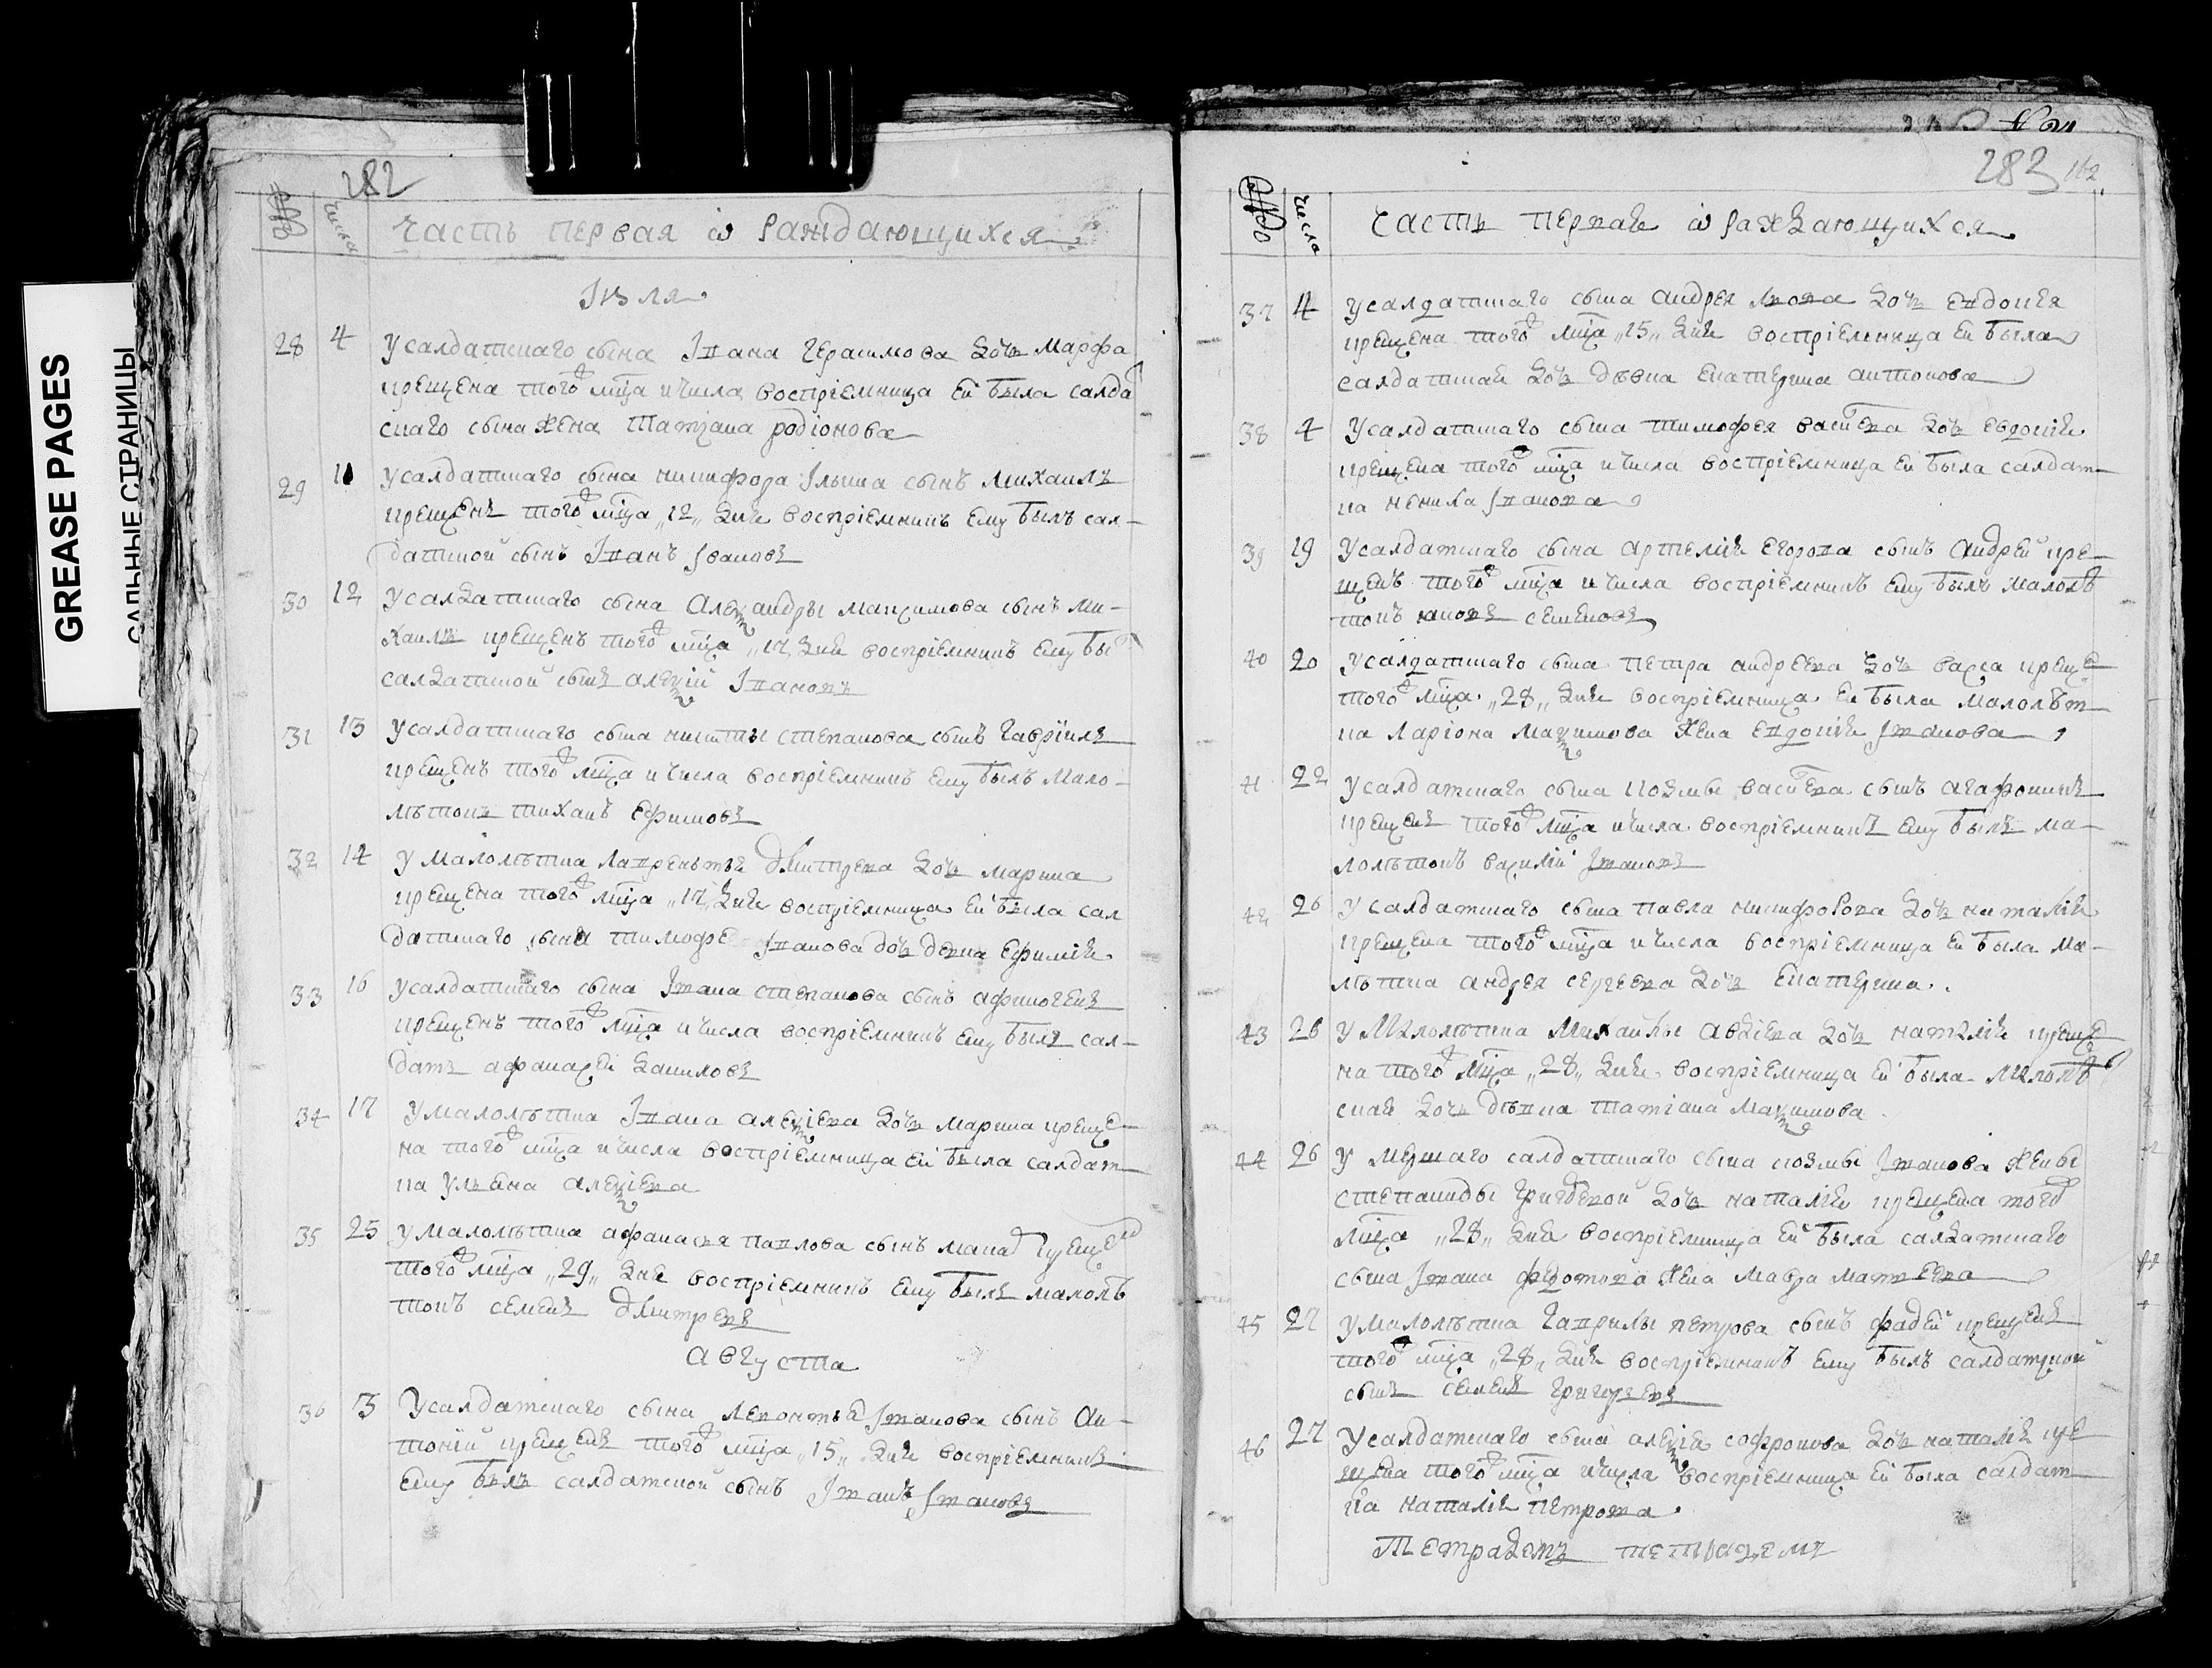 GREASE PAGES
САЛЬНЫЕ СТРАНИЦЫ
282
№ числа Часть первая ѡ раждающихся
Июля
28 4 У салдатскаго сына Ивана Герасимова дочь Марфа
крещена того мца и числа восприемница ей была салда
скаго сына жена Татiана родiонова
29 11 У салдатскаго сына никифора Iльина сынъ михаилъ
крещенъ того мца „12„ дня восприемникъ ему былъ сал-
датской сынъ Iванъ Iвановъ
30 12 У салдатскаго сына Александры максимова сынъ ми-
хаилъ крещенъ того мца „17„ дня восприемникъ ему бы
салдатской сынъ алексiй Iвановъ
31 13 У салдатскаго сына никиты степанова сынъ гаврiилъ
крещенъ того мца и числа восприемникъ ему былъ мало-
лѣтокъ тиханъ ефимовъ
32 14 У малолѣтка лаврентья дмитрева дочь марина
крещена того мца „17„ дня восприемница ей была сал
датскаго сына тимофе Iванова дочь девка ефимiя
33 16 У салдатскаго сына Iвана степанова сынъ афиногенъ
крещенъ того мца и числа восприемникъ ему былъ сал-
датъ афанасей даниловъ
34 17 У малолѣтка Iвана алексiева дочь марина креще-
на того мца и числа восприемница ей была салдат-
ка ульяна алексiева
35 25 У малолѣтка афанасья павлова сынъ макаr крещенъ
того мца „29„ дня восприемникъ ему былъ малолѣ
токъ семенъ дмитревъ
августа
36 3 У салдатскаго сына леонтья Iванова сынъ ан-
тонiй крещенъ того мца „15„ дня восприемникъ
ему былъ салдатской сынъ Iванъ Iвановъ
283 162
№ числа Часть первая ѡ раждающихся
37 4 У салдатскаго сына андрея львова дочь евдокея
крещена того мца „15„ дня восприемница ей была
салдатская дочь дѣвка екатерина антонова
38 4 У салдатскаго сына тимофея васильева дочь евдокия
крещена того мца и числа восприемница ей была салдат-
ка ненила Iванова
39 19 У салдатскаго сына артемия егорова сынъ андрей кре-
щенъ того мца и числа восприемникъ ему былъ малолѣ
токъ семеновъ
40 20 У салдатскаго сына петра андреева дочь васса креще
того мца „28„ дня восприемница ей была малолѣт-
ка ларiона максимова жена евдокия Iванова
41 22 У салдатскаго сына козмы васильева сынъ агафоникъ
крещенъ того мца и числа восприемникъ ему былъ ма-
лолѣтокъ василiй Iвановъ
42 26 У салдатскаго сына павла никифорова дочь наталiя
крещена того мца и числа восприемница ей была ма-
лѣтка андрея сергеева дочь екатерина.
43 26 У малолѣтка михайлы авдiева дочь наталiя креще
на того мца „28„ дня восприемница ей была малолѣ
ская дочь дѣвка татiана максимова.
44 26 У салдатскаго сына козмы Iванова жены
степаниды григорьевой дочь наталiя крещена того
мца „28„ дня восприемница ей была салдатскаго
сына Iвана федотова жена мавра матвеева
45 27 У малолѣтка гаврилы петрова сынъ фадей крещенъ
того мца „28„ дня восприемникъ ему былъ салдатской
сынъ семенъ григорьевъ
46 27 У салдатскаго сына алексiя софронова дочь наталiя кре
щена того мца и числа восприемница ей была салдат-
ка наталiя петрова.